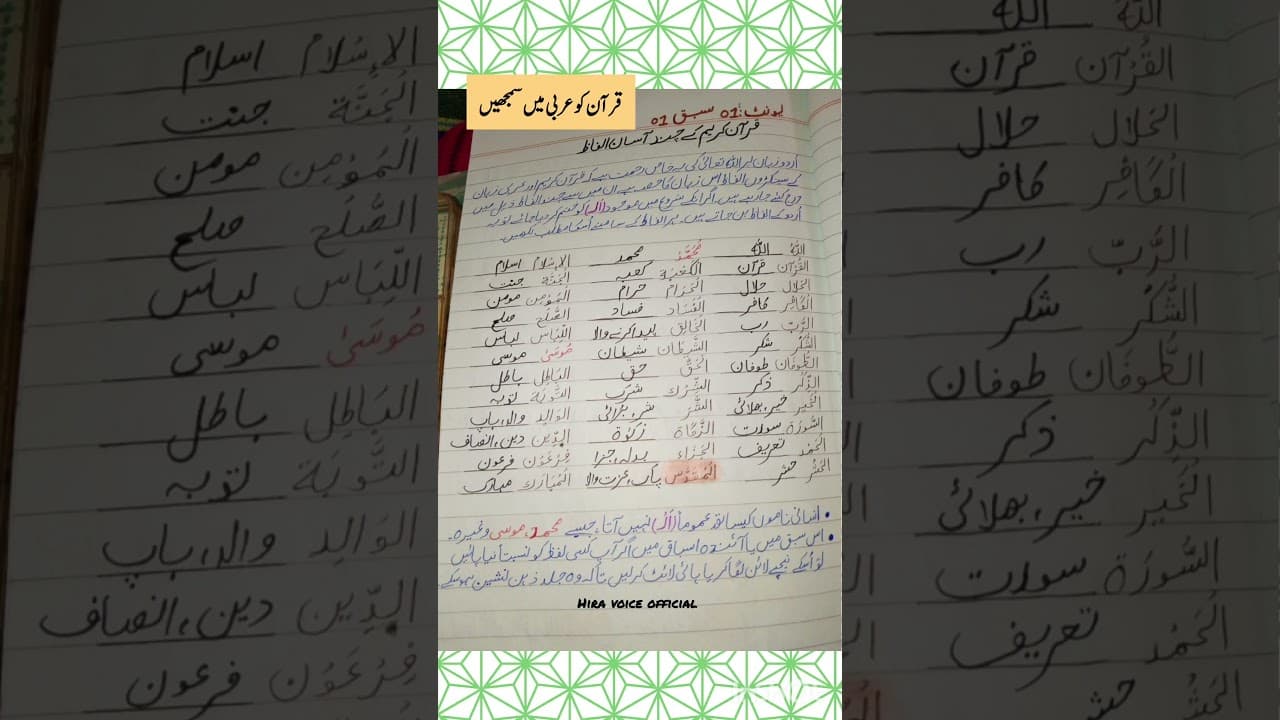 قرآن کو عربی میں سمجھیں
یونٹ:01 سبق 01
قرآن کریم کے چند آسان الفاظ
اُردو زبان پر اللہ تعالیٰ کی یہ خاص رحمت ہے کہ قرآن کریم اور عربی زبان
کے سینکڑوں الفاظ اس زبان کا حصہ ہیں ان میں سے چند الفاظ ذیل میں
درج کیے جا رہے ہیں. اگر انکے شروع میں موجود (اَلْ) کو ختم کر دیا جائے تو یہ
اُردو کے الفاظ بن جاتے ہیں. ہر الفاظ کے سامنے اُسکا مطلب لکھیں.
اَللّٰهُ اللّٰہ مُحَمَّد محمد اَلإِسْلَام اسلام
القُرْآن قرآن الكَعْبَة کعبہ الجَنَّة جنت
الحَلَال حلال الحَرَام حرام المُؤمِن مومن
الْكَافِر کافر الفَسَاد فساد الصُّلح صلح
الرَّبّ رب الخَالِق پیدا کرنے والا اللِّبَاس لباس
الشُّكْرُ شکر الشَّيْطَان شیطان مُوسَىٰ موسی
الطُّوفَان طوفان الحَقُّ حق البَاطِل باطل
الذِّكْر ذکر الشِّرْك شرک التَّوبَة توبہ
الخَير خیر، بھلائی الشَّرّ شر، برائی الوَالِد والد، باپ
السُّورَة سورت الزَّكَاة زکوٰة الدِّين دین، انصاف
الحَمْد تعریف الجَزَاء بدلہ، جزا فِرْعَوْن فرعون
الحَشْر حشر المُقَدَّس پاک، عزت والا المُبَارَك مبارک
• انسانی ناموں کیساتھ عموماً (اَلْ) نہیں آتا. جیسے محمد، موسی وغیرہ.
• اس سبق میں یا آئندہ اسباق میں اگر آپ کسی لفظ کو نسبتاً نیا پائیں
تو اُسکے نیچے لائن لگا کر یا ہائی لائٹ کر لیں تاکہ وہ جلد ذہن نشین ہو سکے.
HIRA VOICE OFFICIAL